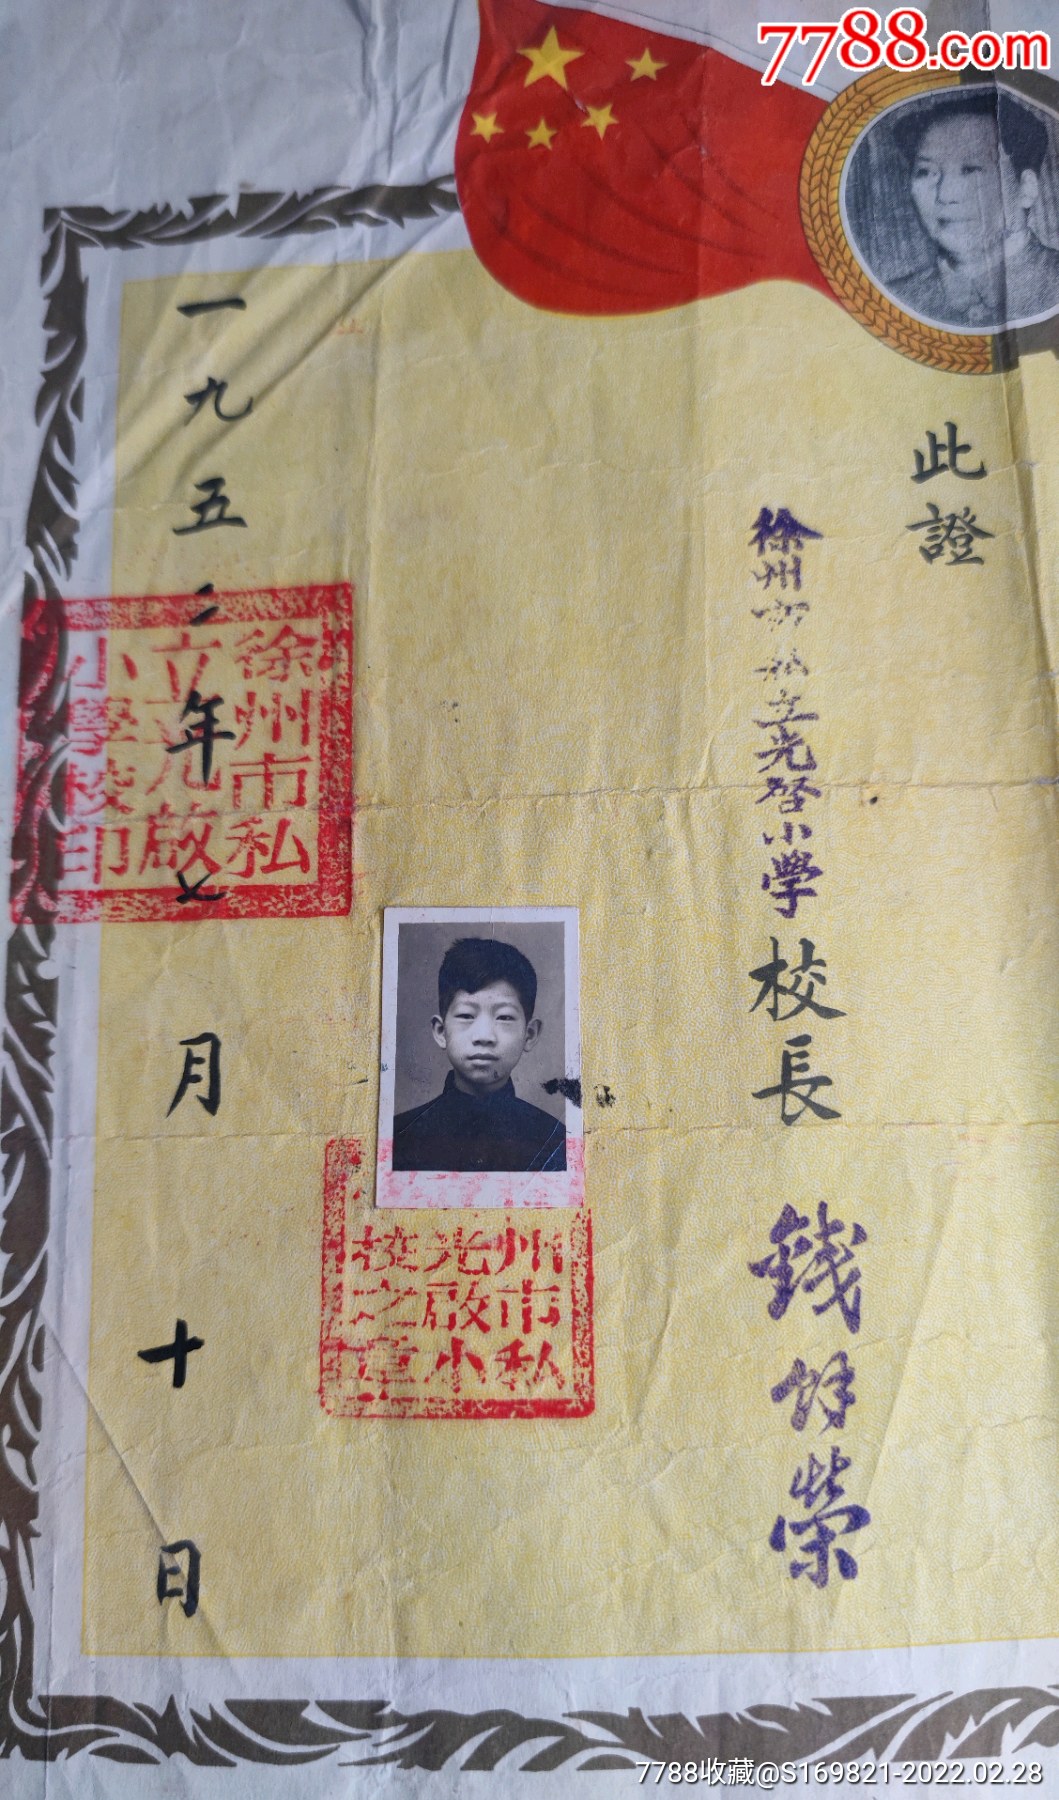 7788.com
此證
徐州市私立光啓小學校長 錢餘榮
一九五二年七月十日
徐州市私
立光啟
小學校印
州市私
光啟小
校之章
7788收藏@S169821-2022.02.28